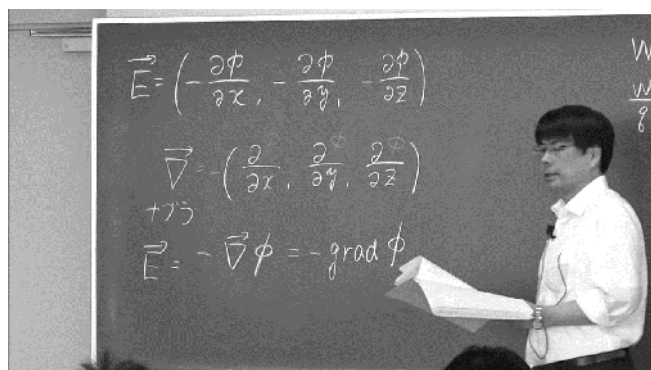 E⃗ = (-∂φ/∂x, -∂φ/∂y, -∂φ/∂z)
∇⃗ = -(∂/∂x, ∂/∂y, ∂/∂z)
ナブラ
E⃗ = -∇⃗φ = -grad φ
W
W/q